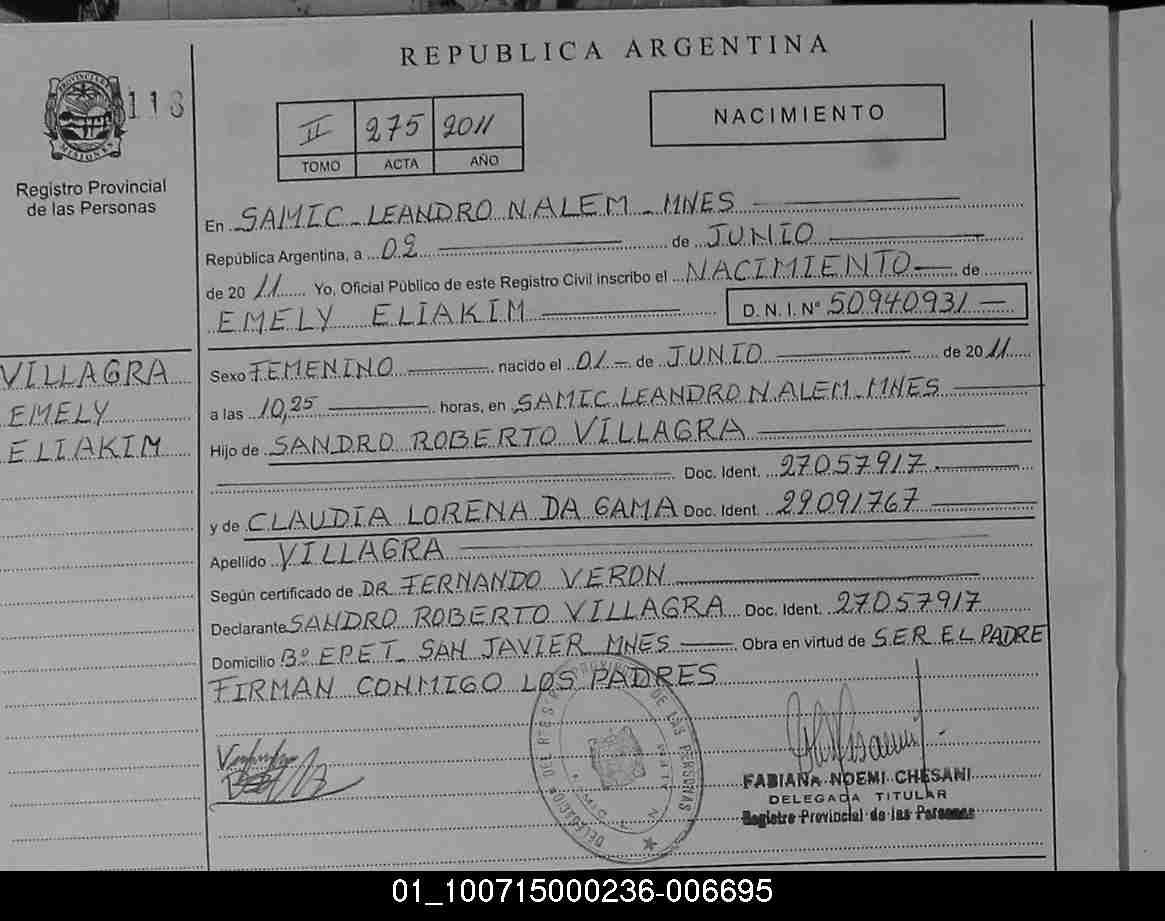 REPUBLICA ARGENTINA
PROVINCIA DE MISIONES
118
Registro Provincial
de las Personas
II 275 2011
TOMO ACTA AÑO
NACIMIENTO
En SAMIC_LEANDRO N.ALEM_MNES
República Argentina, a 02 de JUNIO
de 2011 Yo, Oficial Público de este Registro Civil inscribo el NACIMIENTO de
EMELY ELIAKIM D. N. I. Nº 50940931
VILLAGRA
EMELY
ELIAKIM
Sexo FEMENINO nacido el 01 de JUNIO de 2011
a las 10,25 horas, en SAMIC LEANDRO N ALEM_MNES
Hijo de SANDRO ROBERTO VILLAGRA
Doc. Ident. 27057917
y de CLAUDIA LORENA DA GAMA Doc. Ident. 29091767
Apellido VILLAGRA
Según certificado de DR FERNANDO VERON
Declarante SANDRO ROBERTO VILLAGRA Doc. Ident. 27057917
Domicilio Bº EPET_ SAN JAVIER MNES Obra en virtud de SER EL PADRE
FIRMAN CONMIGO LOS PADRES
FABIANA NOEMI CHESANI
DELEGADA TITULAR
Registro Provincial de las Personas
01_100715000236-006695